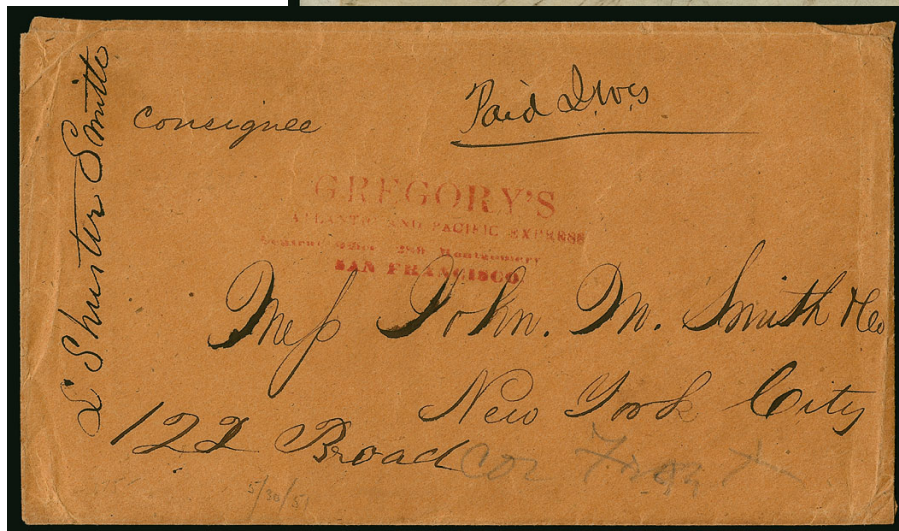 L Shuster Smith
Consignee
Paid
GREGORY'S
ATLANTIC AND PACIFIC EXPRESS
Central Office 280 Montgomery
SAN FRANCISCO
Mess John. M. Smith & Co
New York City
122 Broad cor Front
5/30/51